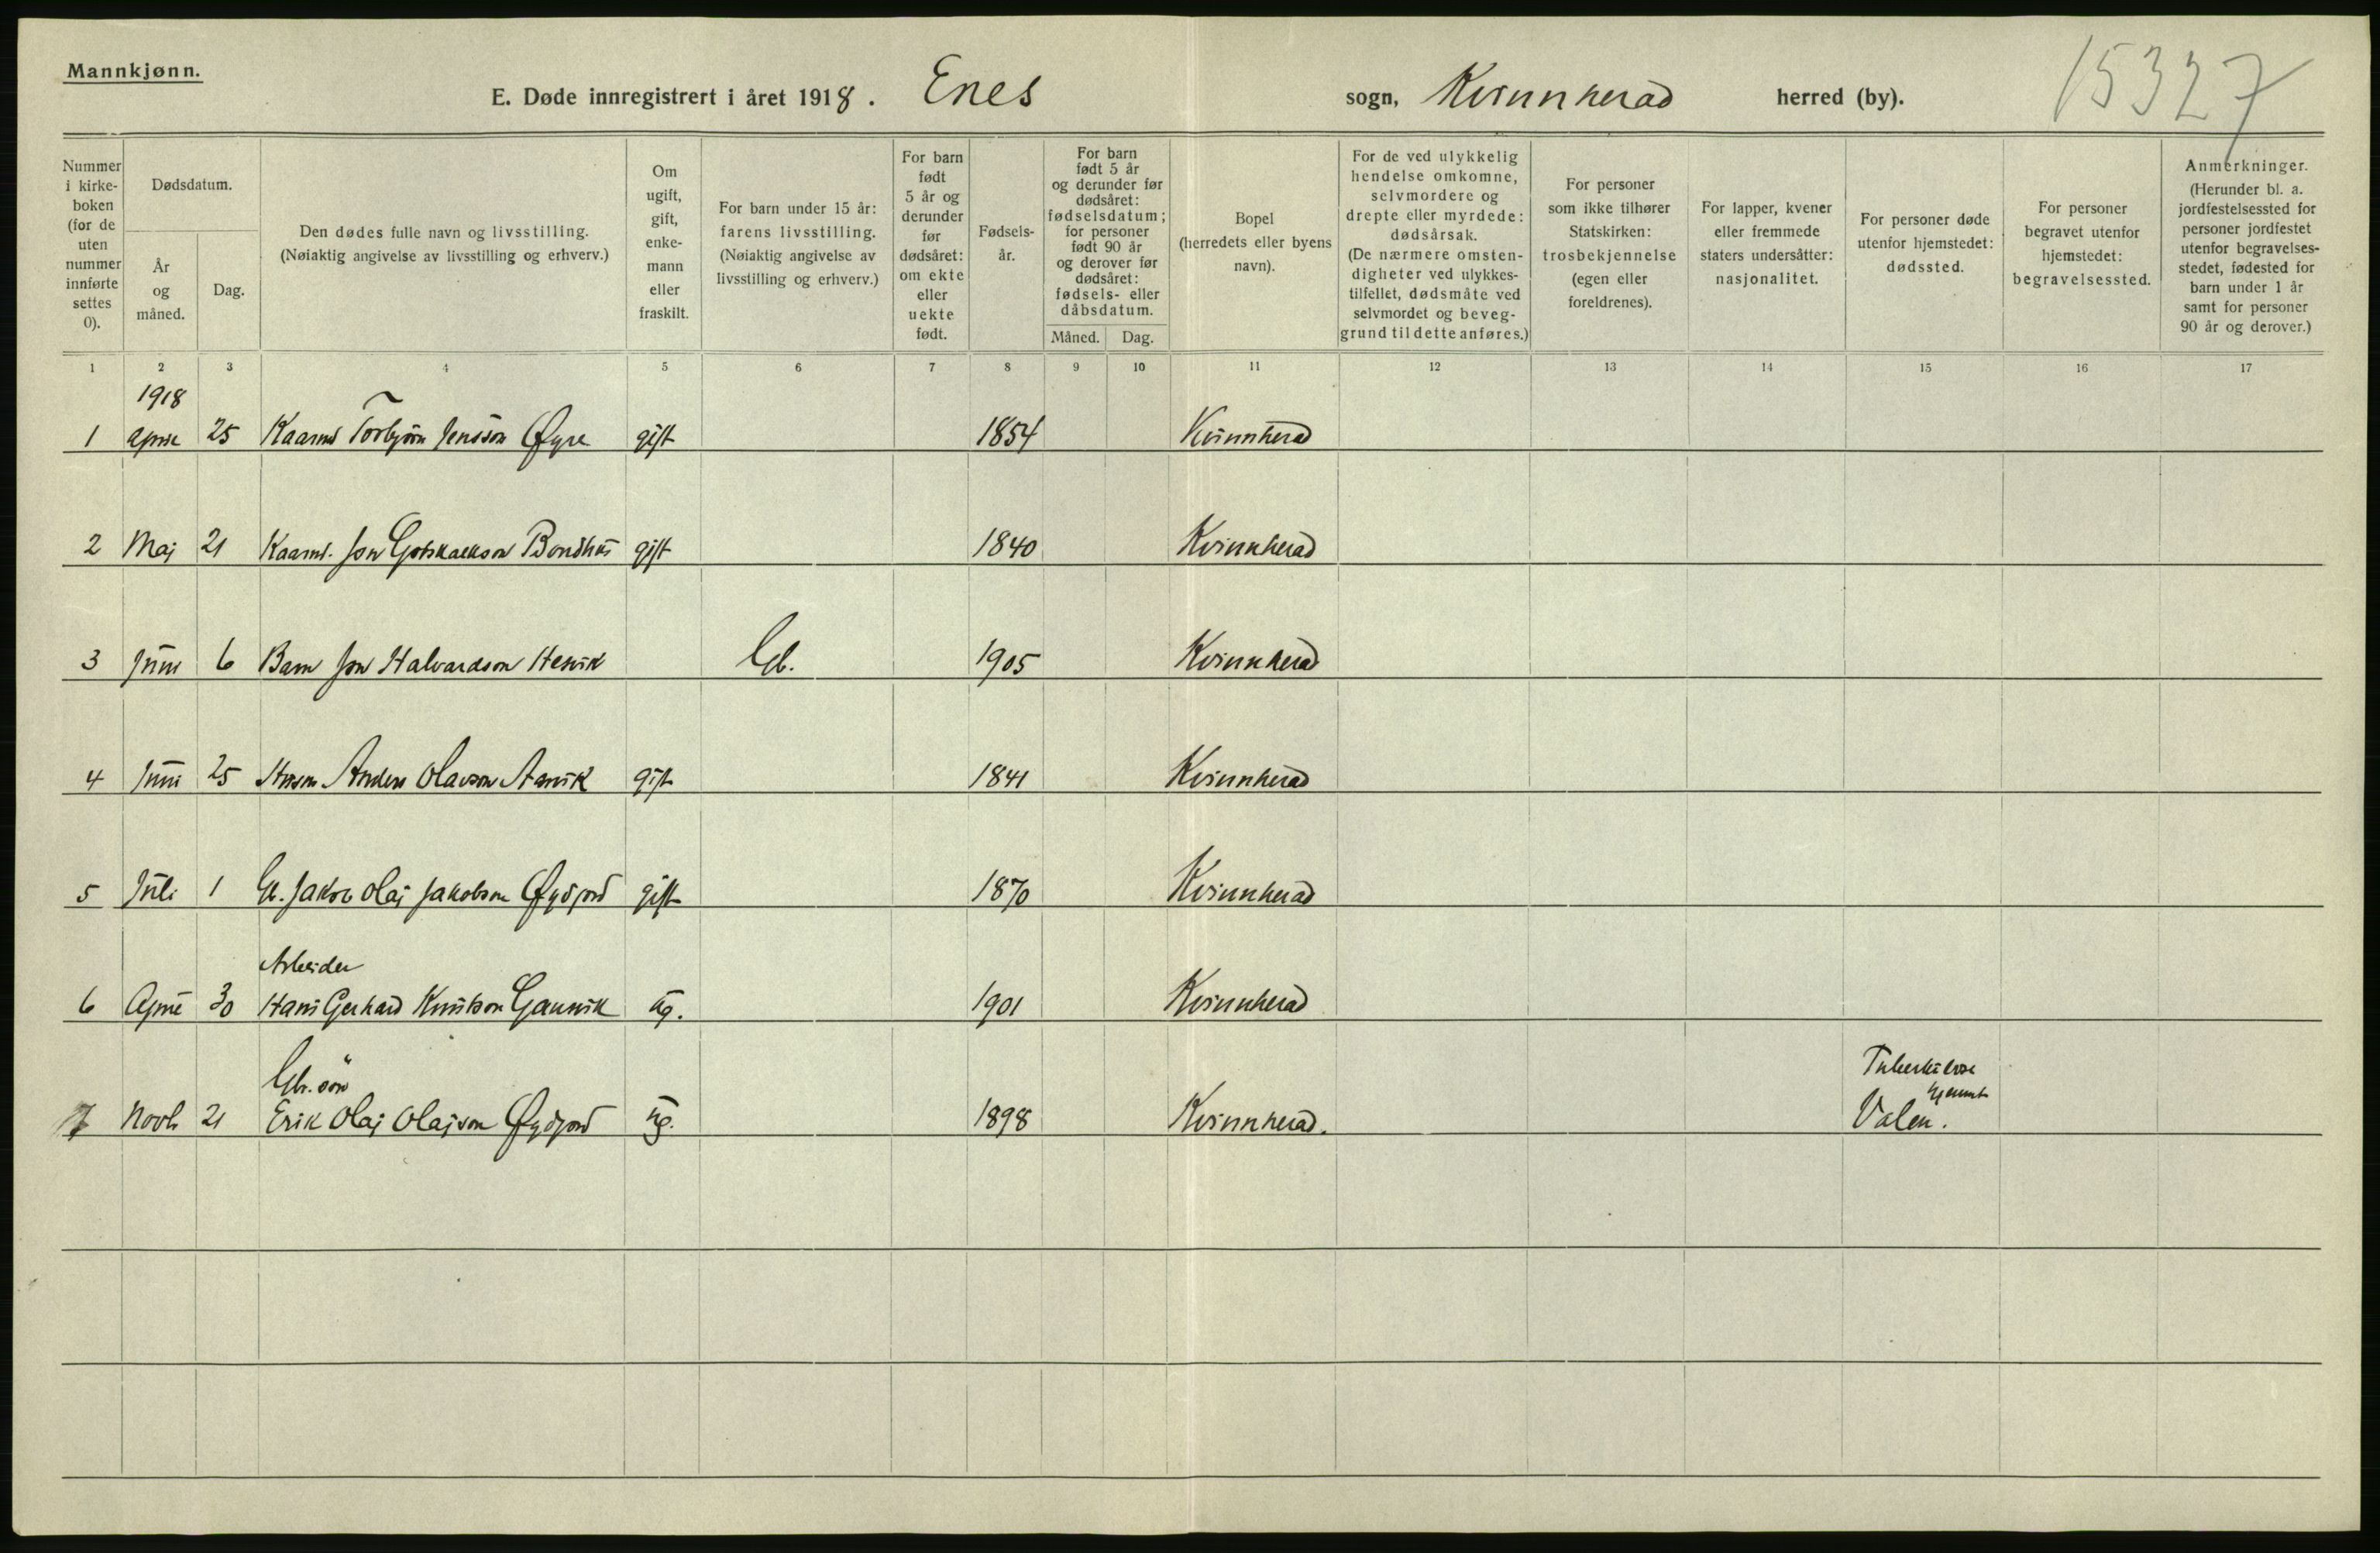 Mannkjønn.
E. Døde innregistrert i året 1918. Enes sogn, Kvinnherad herred (by). 15327
Nummer i kirkeboken (for de uten nummer innførte settes 0).
Dødsdatum.
År og måned.
Dag.
Den dødes fulle navn og livsstilling.
(Nøiaktig angivelse av livsstilling og erhverv.)
Om ugift, gift, enkemann eller fraskilt.
For barn under 15 år: farens livsstilling.
(Nøiaktig angivelse av livsstilling og erhverv.)
For barn født 5 år og derunder før dødsåret: om ekte eller uekte født.
Fødselsår.
For barn født 5 år og derunder før dødsåret: fødselsdatum; for personer født 90 år og derover før dødsåret: fødsels- eller dåbsdatum.
Måned.
Dag.
Bopel (herredets eller byens navn).
For de ved ulykkelig hendelse omkomne, selvmordere og drepte eller myrdede: dødsårsak.
(De nærmere omstendigheter ved ulykkestilfellet, dødsmåte ved selvmordet og beveggrund til dette anføres.)
For personer som ikke tilhører Statskirken: trosbekjennelse (egen eller foreldrenes).
For lapper, kvener eller fremmede staters undersåtter: nasjonalitet.
For personer døde utenfor hjemstedet: dødssted.
For personer begravet utenfor hjemstedet: begravelsessted.
Anmerkninger.
(Herunder bl. a. jordfestelsessted for personer jordfestet utenfor begravelsesstedet, fødested for barn under 1 år samt for personer 90 år og derover.)
1 2 3 4 5 6 7 8 9 10 11 12 13 14 15 16 17
1918
1 april 25 Kaarm Torbjörn Jensson Øyre gift 1854 Kvinnherad
2 Maj 21 Kaarm. Jon Gotskalkson Bondhus gift 1840 Kvinnherad
3 Juni 6 Barn Jon Halvardson Hesvik Gb. 1905 Kvinnherad
4 Juni 25 Anders Olavson gift 1841 Kvinnherad
5 Juli 1 Gb. Jakob Olaj Jakobson Øydfjord gift 1870 Kvinnherad
Arbeider
6 April 30 Hans Gerhard Knutson Gauvik ug. 1901 Kvinnherad
Gbr. sön
7 Novb 21 Erik Olaj Olajson Øydfjord ug. 1898 Kvinnherad. Tuberkulose
hjemmet
Valen.